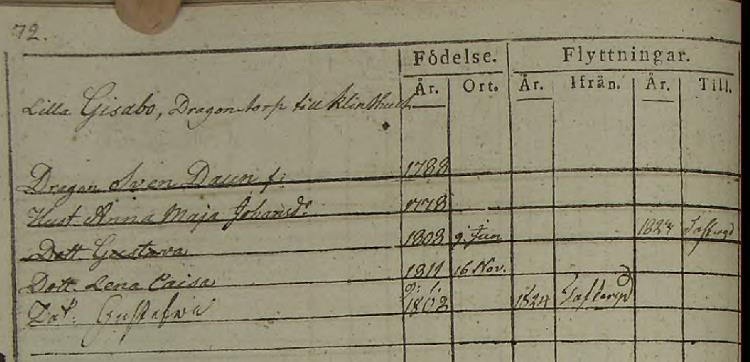 72.
Födelse. Flyttningar.
År. Ort. År. Ifrån. År. Till.
Lilla Gisabo, Dragontorp till Klinthult
Dragon Sven Daun f: 1788
Hust Anna Maja Johansd: 1778
Dott Gustava 1808 9 Jun 1824
Dott. Lena Caisa 1811 16 Nov.
Gustafva 1808 1824